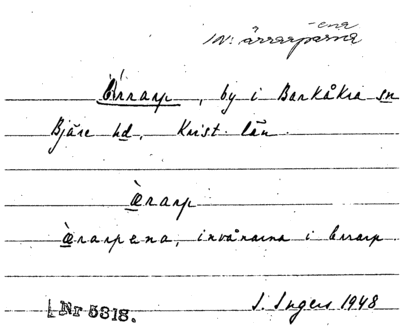 -ena
IN: ärrarparna
Errarp, by i Barkåkra sn
Bjäre hd, Krist. län
ærarp
ærarpena, invånarna i Errarp
Nr 5318.
I. Ingers 1948